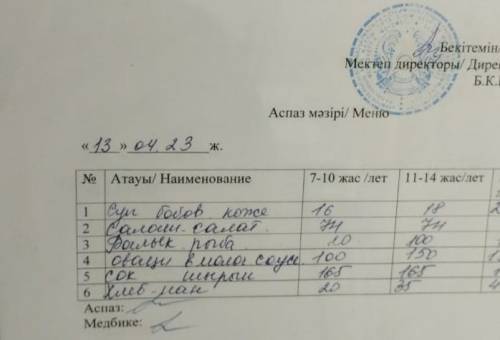 Бекітемін
Мектеп директоры/ Дирек
Б.К.
Аспаз мәзірі/ Меню
«13» 04. 23 ж.
№ Атауы/ Наименование 7-10 жас /лет 11-14 жас/лет
1 Суп бобов көже 16 18 2
2 Салат. 74 74
3 Балык рыба 100
4 овощи в молоч соусе 100 150 1
5 сок шырын 165 165
6 Хлеб-нан 20 35 4
Аспаз:
Медбике: